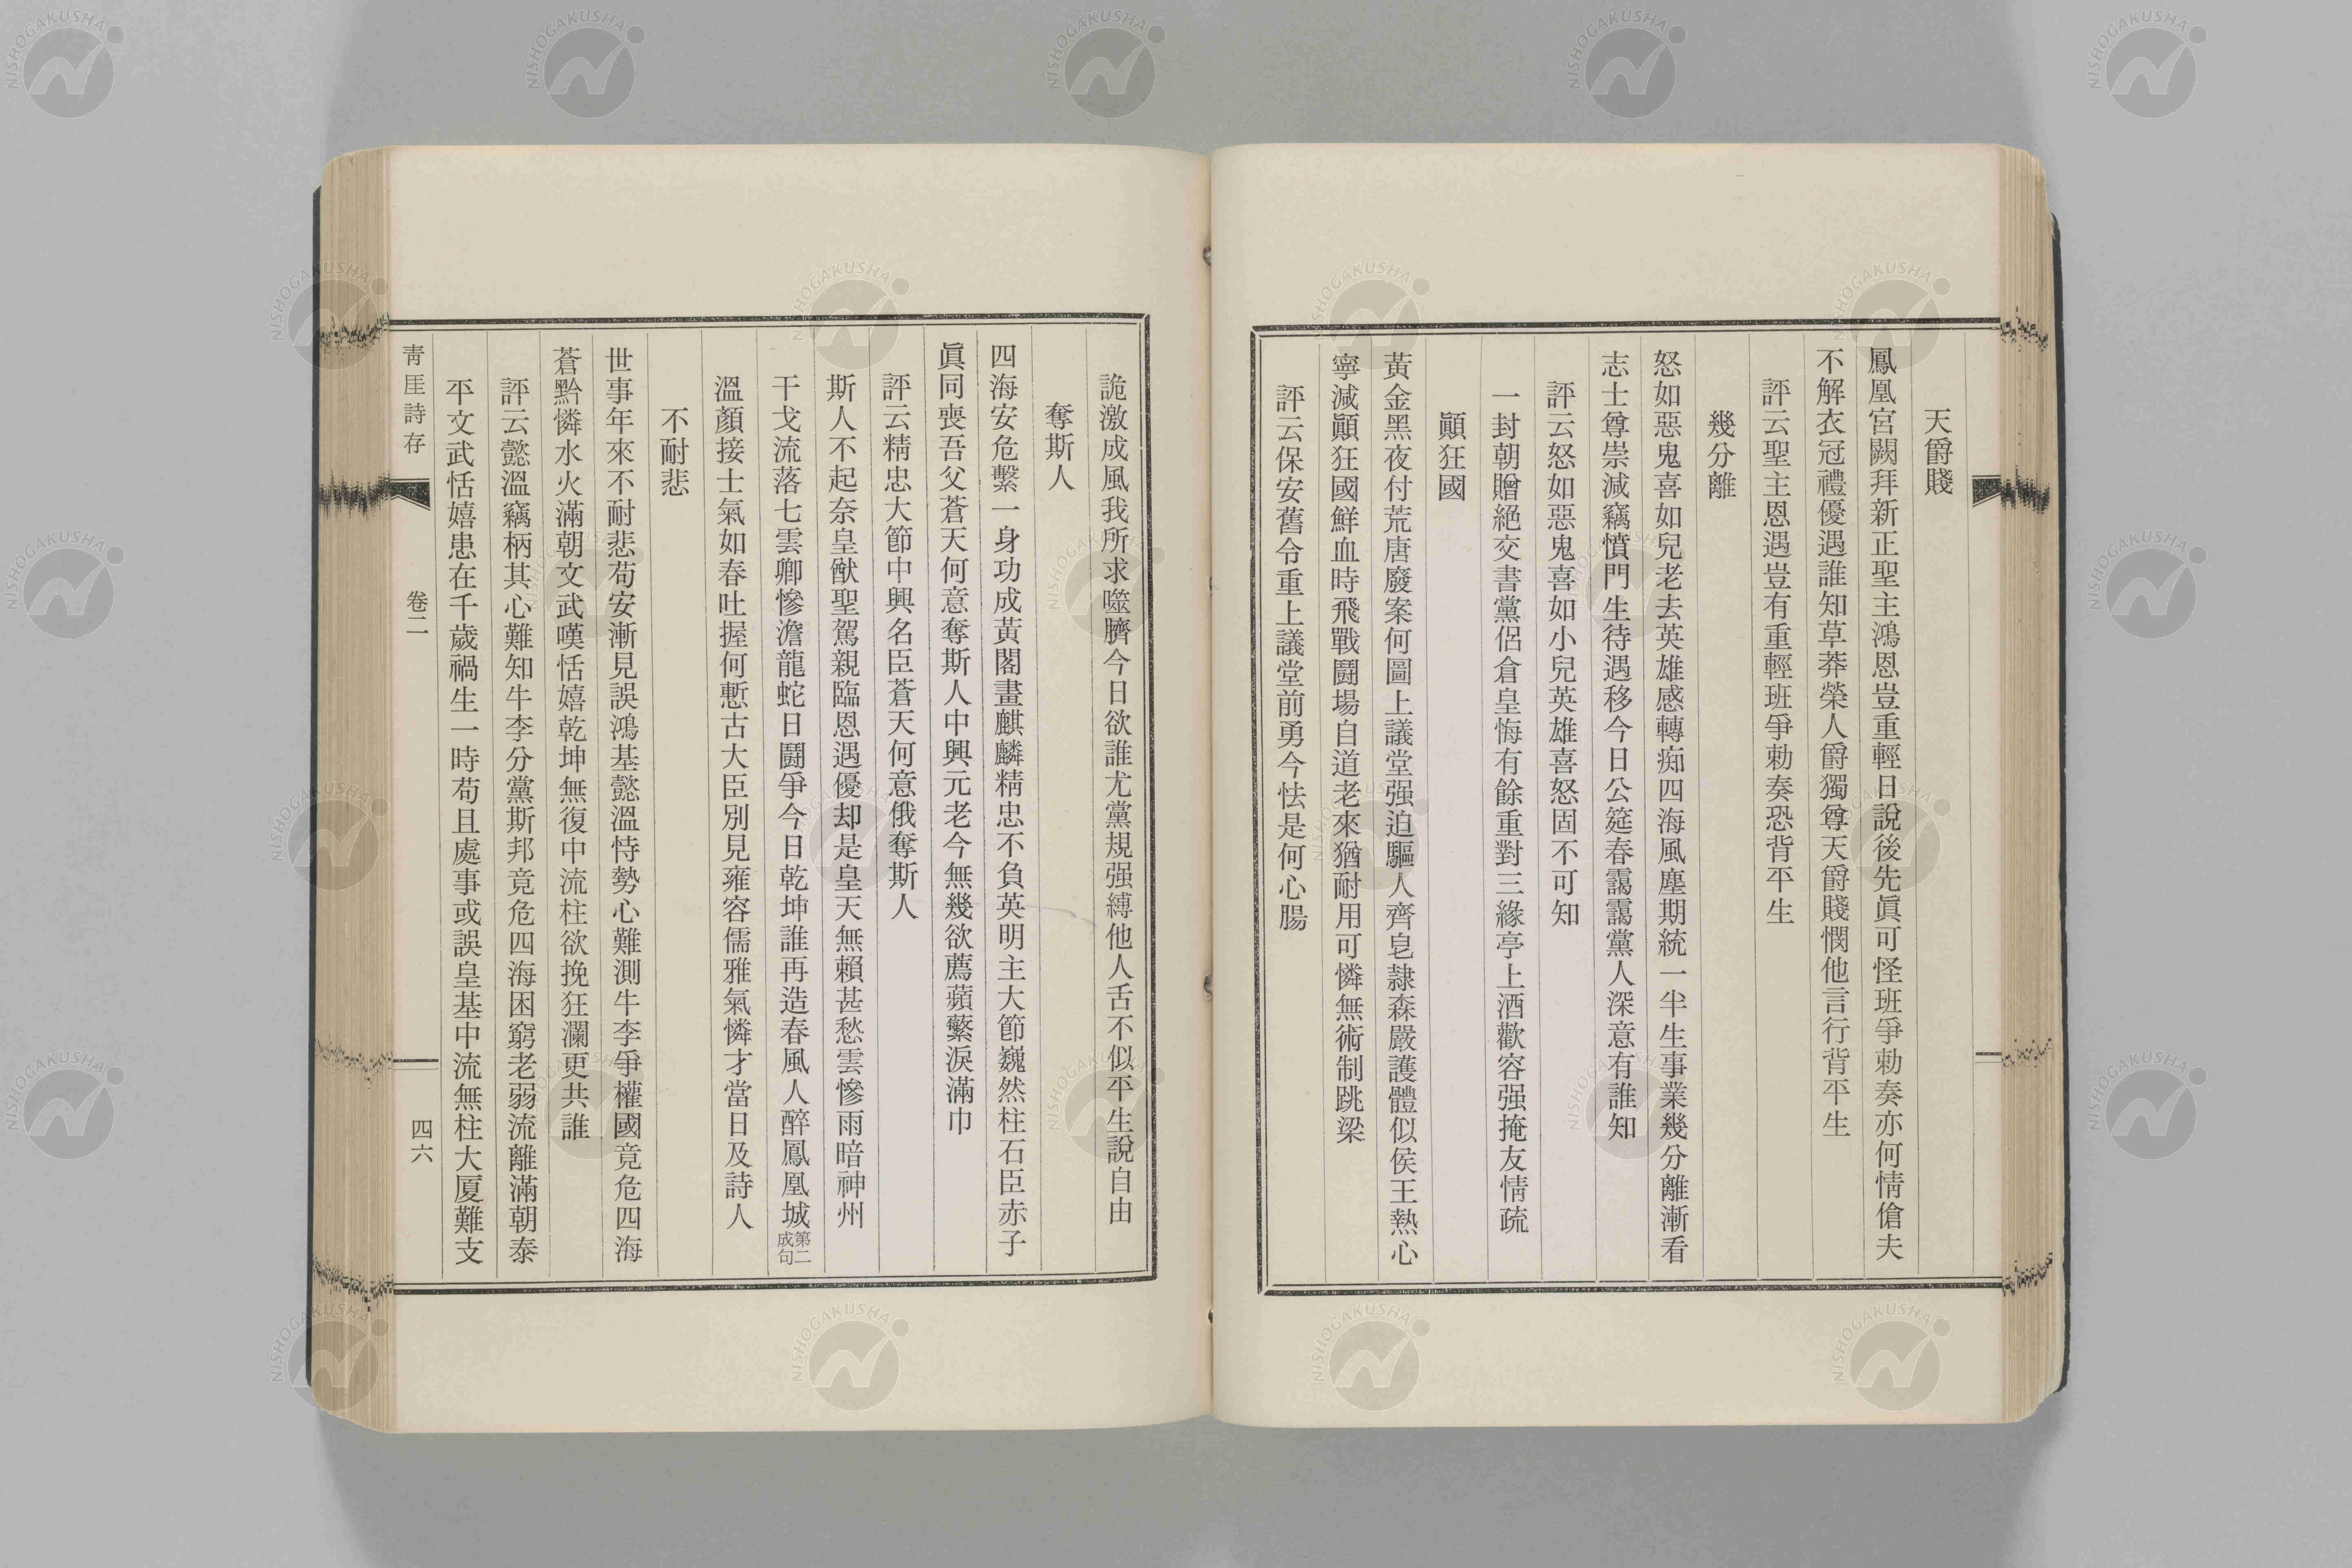 天爵賤
鳳凰宮闕拜新正聖主鴻恩豈重輕日說後先眞可怪班爭勅奏亦何情傖夫
不解衣冠禮優遇誰知草莽榮人爵獨尊天爵賤憫他言行背平生
評云聖主恩遇豈有重輕班爭勅奏恐背平生
幾分離
怒如惡鬼喜如兒老去英雄感轉痴四海風塵期統一半生事業幾分離漸看
志士尊崇減竊憤門生待遇移今日公筵春靄靄黨人深意有誰知
評云怒如惡鬼喜如小兒英雄喜怒固不可知
一封朝贈絕交書黨侶倉皇悔有餘重對三緣亭上酒歡容强掩友情疏
顚狂國
黃金黑夜付荒唐廢案何圖上議堂强迫驅人齊皂隷森嚴護體似侯王熱心
寧減顚狂國鮮血時飛戰鬪場自道老來猶耐用可憐無術制跳梁
評云保安舊令重上議堂前勇今怯是何心腸
詭激成風我所求噬臍今日欲誰尤黨規强縛他人舌不似平生說自由
奪斯人
四海安危繫一身功成黃閣畫麒麟精忠不負英明主大節巍然柱石臣赤子
眞同喪吾父蒼天何意奪斯人中興元老今無幾欲薦蘋蘩淚滿巾
評云精忠大節中興名臣蒼天何意俄奪斯人
斯人不起奈皇猷聖駕親臨恩遇優却是皇天無賴甚愁雲慘雨暗神州
干戈流落七雲卿慘澹龍蛇日鬪爭今日乾坤誰再造春風人醉鳳凰城第二成句
溫顏接士氣如春吐握何慙古大臣別見雍容儒雅氣憐才當日及詩人
不耐悲
世事年來不耐悲苟安漸見誤鴻基懿溫恃勢心難測牛李爭權國竟危四海
蒼黔憐水火滿朝文武嘆恬嬉乾坤無復中流柱欲挽狂瀾更共誰
評云懿溫竊柄其心難知牛李分黨斯邦竟危四海困窮老弱流離滿朝泰
平文武恬嬉患在千歲禍生一時苟且處事或誤皇基中流無柱大厦難支
青厓詩存
卷二
四六
NISHOGAKUSHA